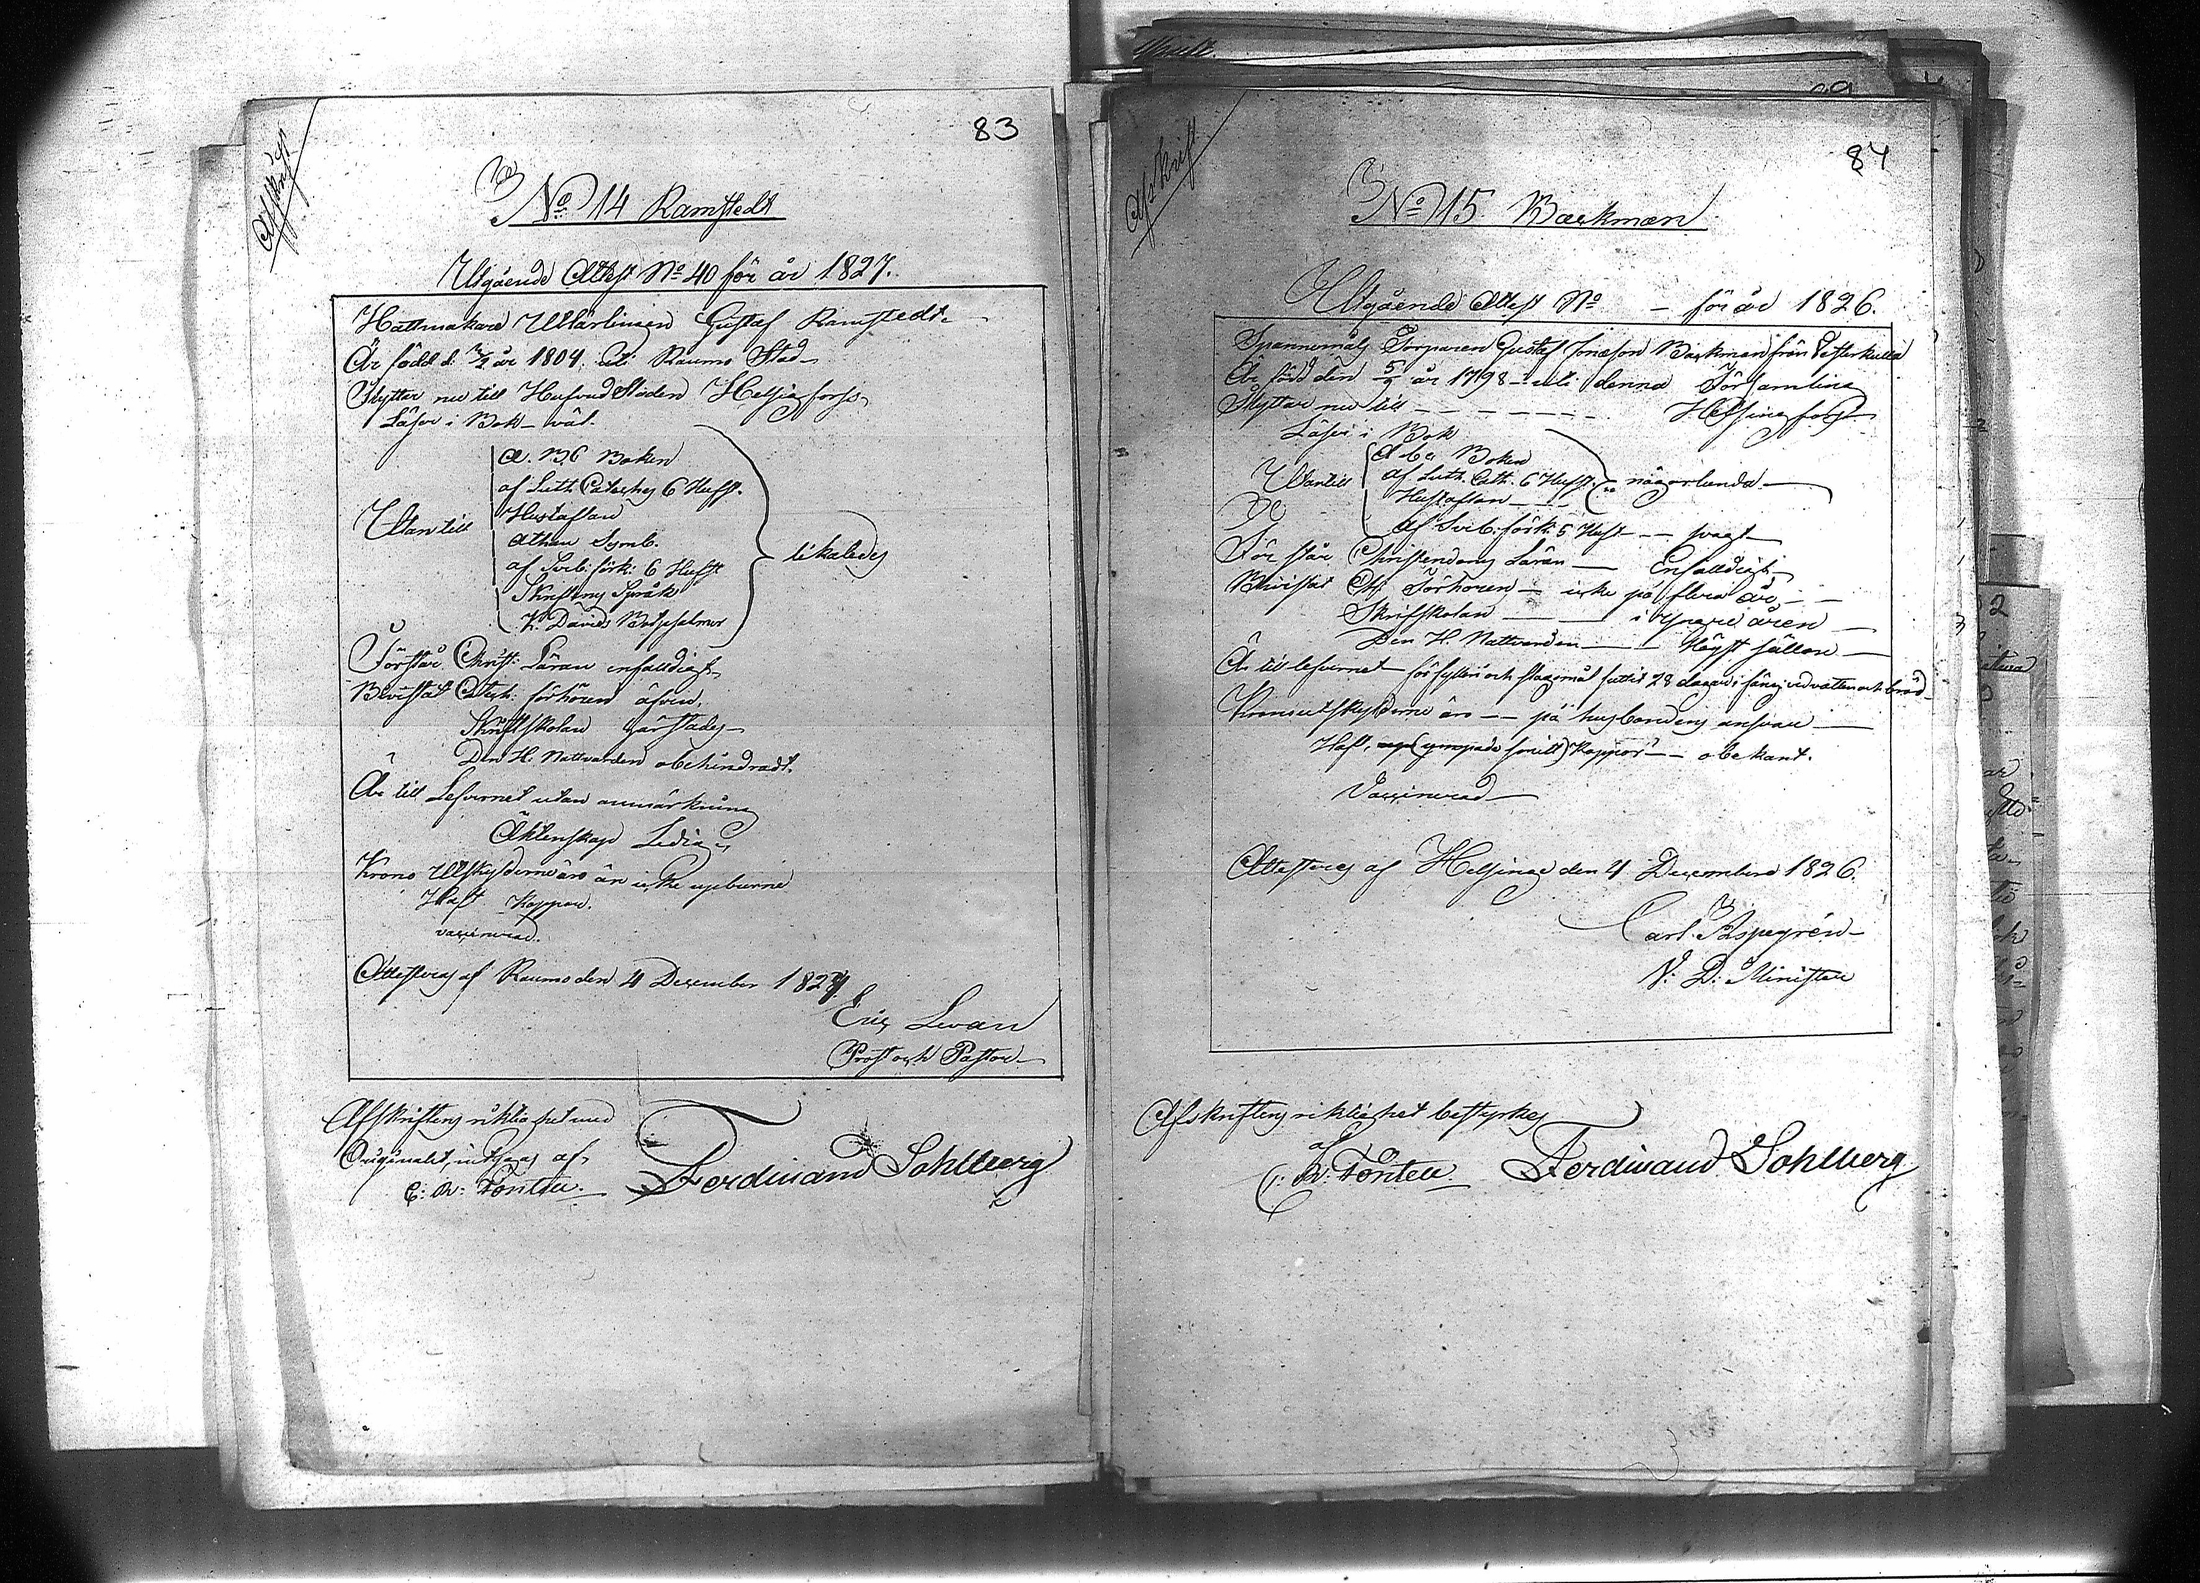 Afskrift
83
No 14 Ramstedt
Utgående Attest No 40 för år 1827.
Hattmakare Utlärlingen Gustaf Ramstedt
Är född d. år 1804 uti Raumo Stad
Flyttar nu till Hufvud Staden Helsingfors
Läser i Bok väl.
A. B. C Boken
af Luth Catechs 6 Hufst.
Hustaflan
Utan till
Athan Symb.
likaledes
af Sveb: förk: 6 Hufst
Skriftens Språk
K. Davids Botpsalmer
Förstår Christ: Läran enfalldigt
Bevistat Catech: förhören äfven,
Skriftskolan
Den H. Nattvarden obehindradt.
Är till Lefvernet utan anmärkning
Äktenskap Ledig
Krono Utskylderne äro än icke upburne
Haft Koppor.
vaccinerad.
Attesteras af Raumo den 4 December 1827.
Eric Levan
Prost och Pastor
Afskriftens riktighet med
Originalet, intygas af
C: R: Fontell. Ferdinand Sohlberg
Afskrift
84
No 15 Backman
Utgående Attest No - för år 1826.
Spannemåls Torparen Gustaf Jonasson Backman från
Är född den 5/ år 1798 uti denna Församling
Flyttar nu till - - - - - - Helsingfors
Läser i Bok
Abc Boken
Utantill af Luth. Cath. 6 Hufst. någorlunda
Hustaflan
af Sveb: förk: 5 Hufst - - svagt
För står Christendoms Läran - Enfalldigt
Bevistat Förhören - icke på flera år - -
Skriftskolan - i yngre åren
Den H. Nattvarden - Högst sällan
Är til lefvernet för fylleri och slagsmål suttit 28 dagar i fäng. vid vatten och bröd
Kronoutskylderne äro - - på husbondens ansvar
Haft, Koppor - - obekant.
Vaccinerad
Attesteras af Helsinge den 4 Decembris 1826.
Carl Aspegrén
V: D: Minister
Afskriftens riktighet bestyrkes
af
C: R: Fontell. Ferdinand Sohlberg